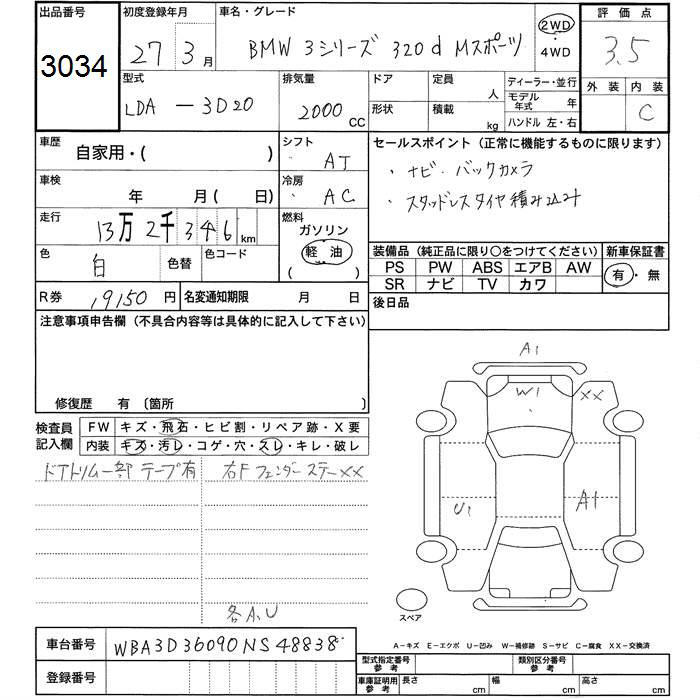 出品番号
3034
初度登録年月
27年 3月
車名・グレード
BMW 3シリーズ 320d Mスポーツ
2WD
・
4WD
評価点
3.5
外装
内装
C
型式
LDA － 3D20
排気量
2000 CC
ドア
形状
定員
人
積載
kg
ディーラー・並行
モデル年式 年
ハンドル 左・右
車歴
自家用・( )
シフト
AT
車検
年 月 ( 日)
冷房
AC
走行
13万2千346km
燃料
ガソリン
軽油
( )
色
白
色替
色コード
R券
19150円
名変通知期限
月 日
セールスポイント (正常に機能するものに限ります)
・ナビ・バックカメラ
・スタッドレスタイヤ積み込み
装備品 (純正品に限り○をつけてください)
PS PW ABS エアB AW
SR ナビ TV カワ
新車保証書
有・無
後日品
注意事項申告欄 (不具合内容等は具体的に記入して下さい)
修復歴 有 〔箇所 〕
検査員
記入欄
FW キズ・飛石・ヒビ割・リペア跡・X要
内装 キズ・汚レ・コゲ・穴・スレ・キレ・破レ
ドアトリム一部テープ有
右Fフェンダーステー××
各A、U
A1
W1
××
U1
A1
スペア
A－キズ E－エクボ U－凹み W－補修跡 S－サビ C－腐食 XX－交換済
車台番号
WBA3D36090NS48838
登録番号
型式指定番号
参考
類別区分番号
参考
車庫証明用
参考
長さ cm
幅 cm
高さ cm